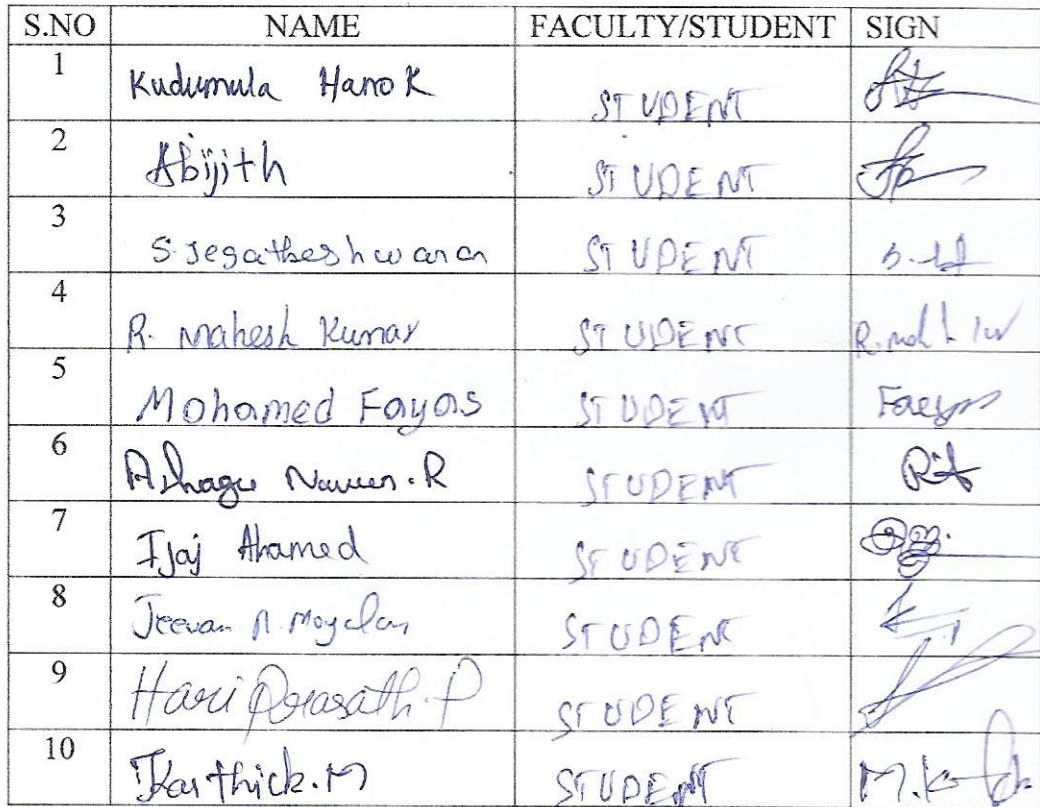 S.NO NAME FACULTY/STUDENT SIGN
1 Kudumula Hanok STUDENT
2 Abijith STUDENT
3 S. Jegatheshwaran STUDENT
4 R. Mahesh Kumar STUDENT
5 Mohamed Fayas STUDENT
6 Naveen. R STUDENT
7 Ijaj Ahamed STUDENT
8 Jeevan STUDENT
9 Hari Prasath. P STUDENT
10 Karthick. M STUDENT